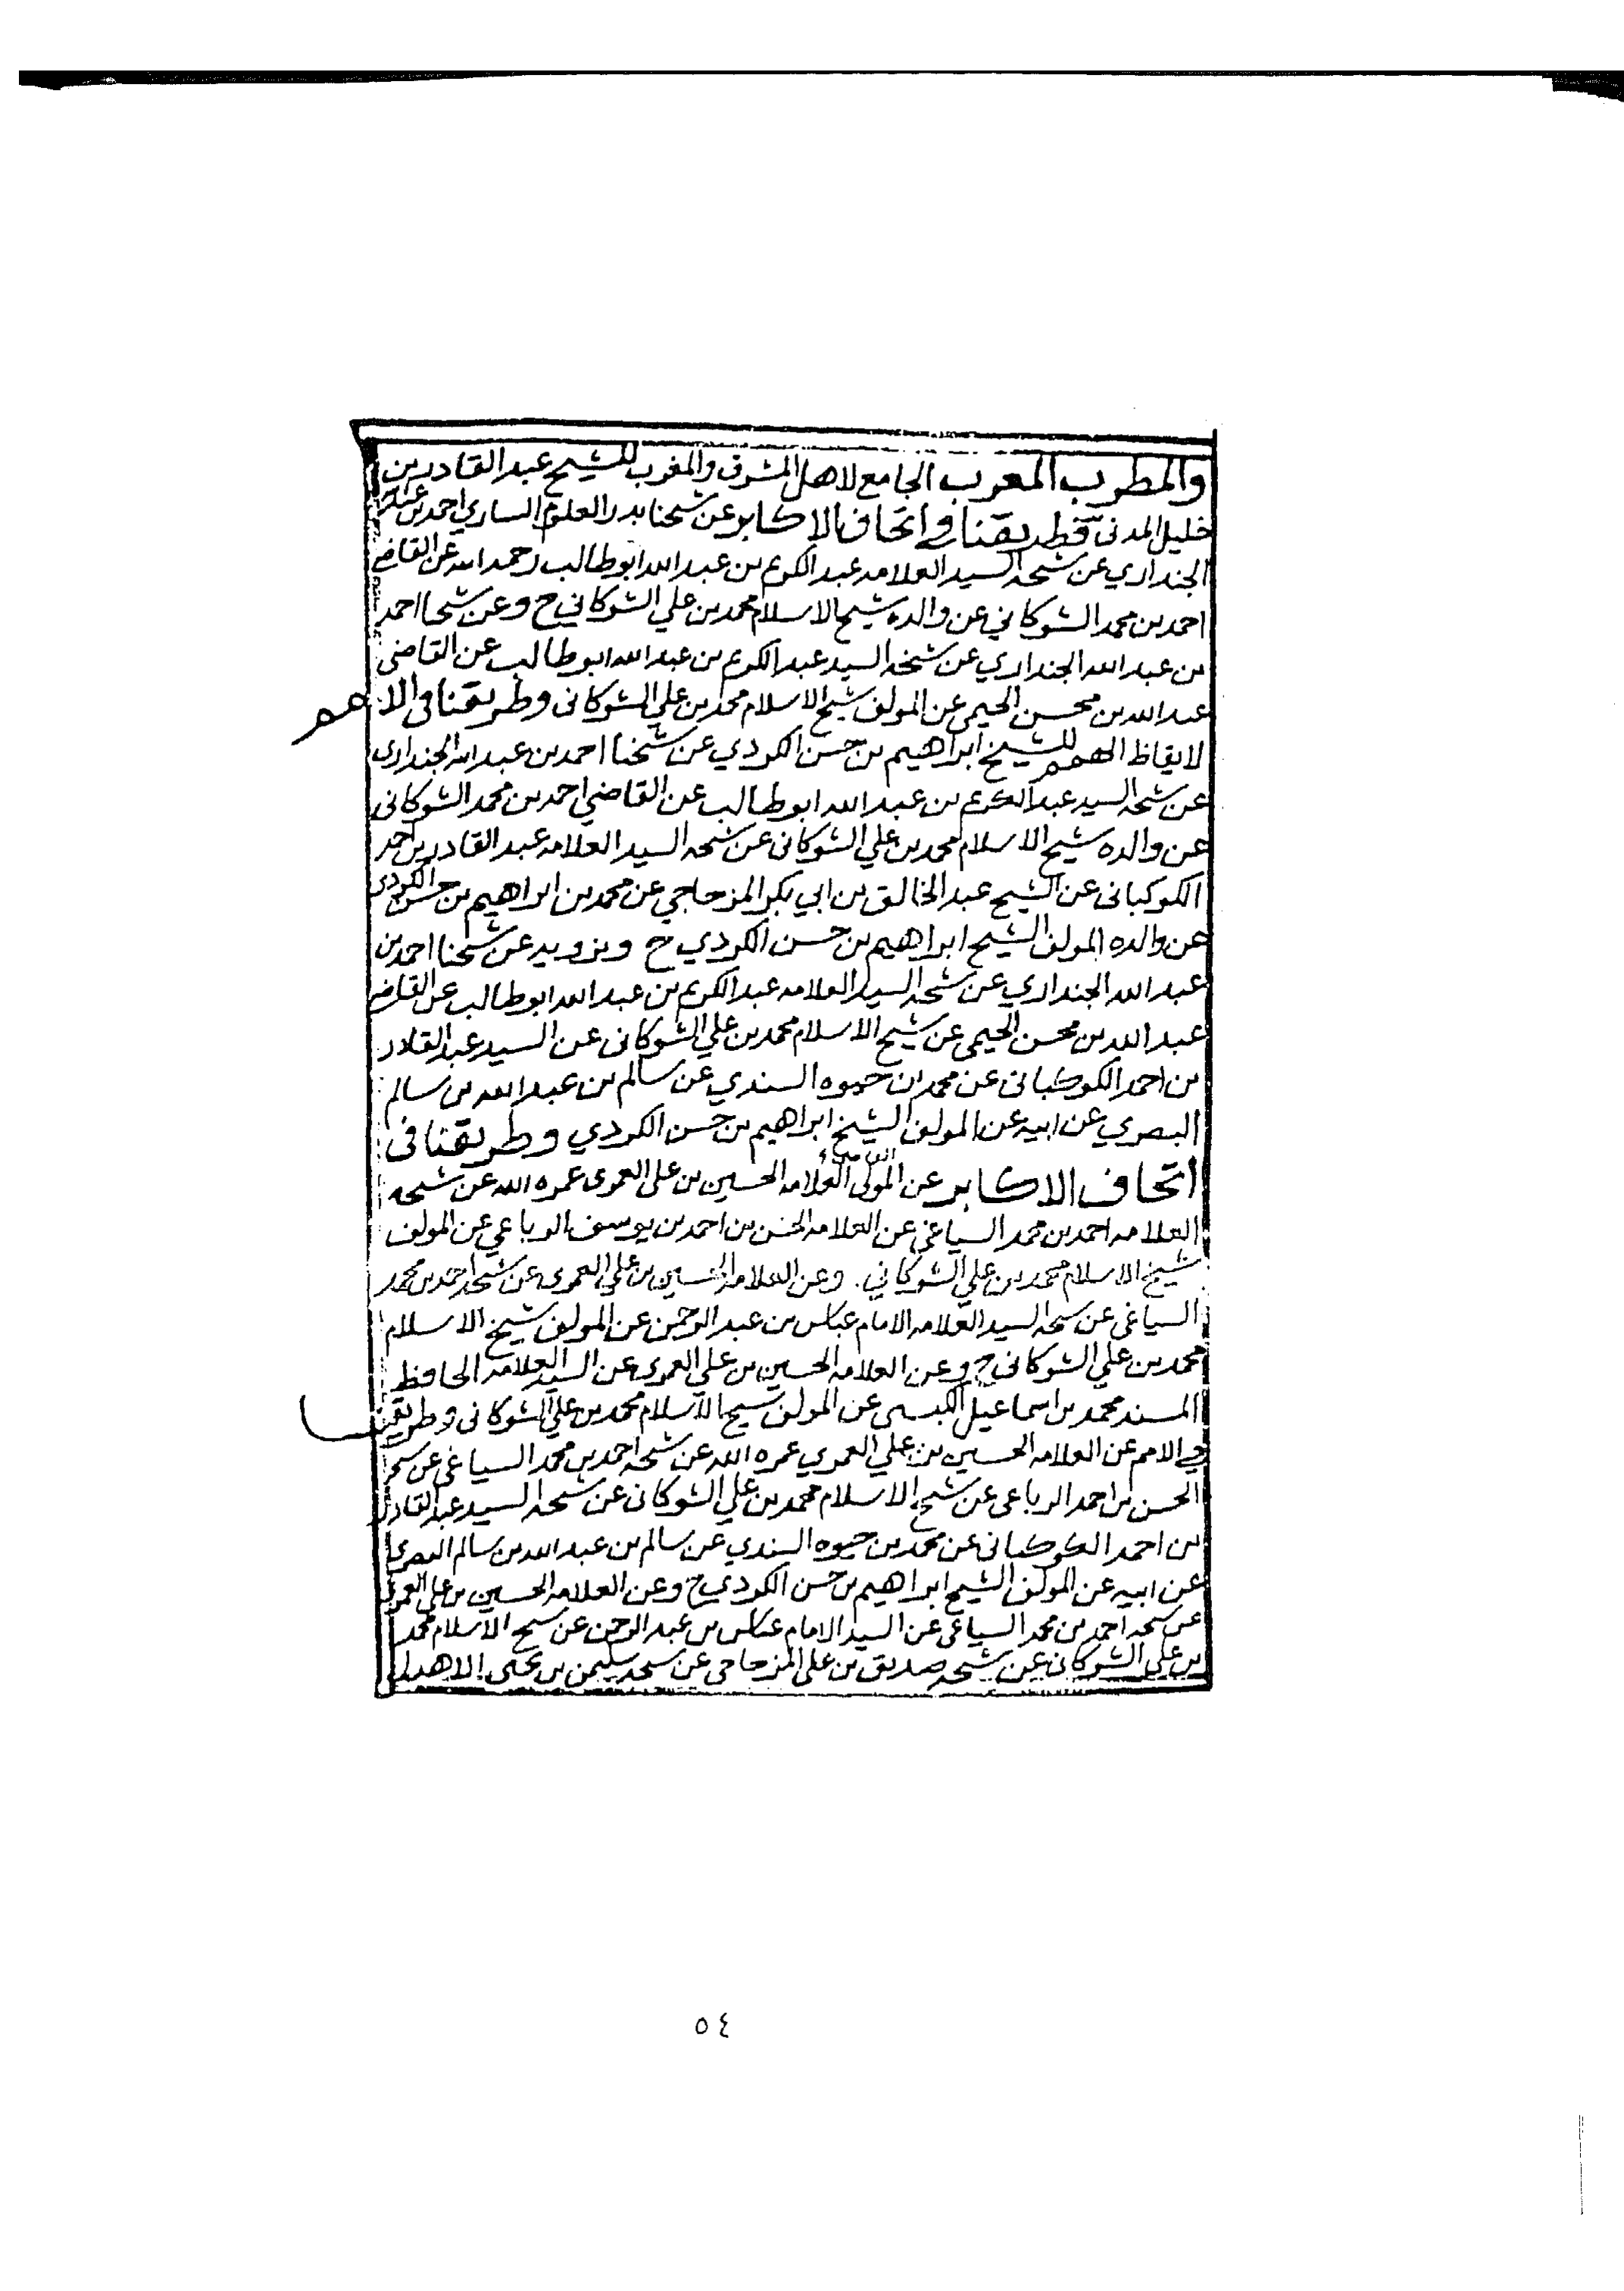 والمطرب المعرب الجامع لاهل المشرق والمغرب للشيخ عبد القادر بن
خليل المدني فطريقنا في اتحاف الاكابر عن شيخنا بدر العلوم الساري احمد بن عبد الله
الجنداري عن شيخه السيد العلامه عبد الكريم بن عبد الله ابو طالب رحمه الله عن القاضي
احمد بن محمد الشوكاني عن والده شيخ الاسلام محمد بن علي الشوكاني ح وعن شيخنا احمد
بن عبد الله الجنداري عن شيخه السيد عبد الكريم بن عبد الله ابو طالب عن القاضي
عبد الله بن محسن الحيمي عن المولف شيخ الاسلام محمد بن علي الشوكاني وطريقنا في الامم
لايقاظ الهمم للشيخ ابراهيم بن حسن الكردي عن شيخنا احمد بن عبد الله الجنداري
عن شيخه السيد عبد الكريم بن عبد الله ابو طالب عن القاضي احمد بن محمد الشوكاني
عن والده شيخ الاسلام محمد بن علي الشوكاني عن شيخه السيد العلامه عبد القادر بن احمد
الكوكباني عن الشيخ عبد الخالق بن ابي بكر المزجاجي عن محمد بن ابراهيم بن حسن الكردي
عن والده المولف الشيخ ابراهيم بن حسن الكردي ح ونرويه عن شيخنا احمد بن
عبد الله الجنداري عن شيخه السيد العلامه عبد الكريم بن عبد الله ابو طالب عن القاضي
عبد الله بن محسن الحيمي عن شيخ الاسلام محمد بن علي الشوكاني عن السيد عبد القادر
بن احمد الكوكباني عن محمد بن حيوه السندي عن سالم بن عبد الله بن سالم
البصري عن ابيه عن المولف الشيخ ابراهيم بن حسن الكردي وطريقنا في
اتحاف الاكابر عن المولى العلامه الحسين بن علي العمري عمره الله عن شيخه
العلامه احمد بن محمد السياغي عن العلامه الحسن بن احمد بن يوسف الرباعي عن المولف
شيخ الاسلام محمد بن علي الشوكاني. وعن العلامه الحسين بن علي العمري عن شيخه احمد بن محمد
السياغي عن شيخه السيد العلامه الامام عباس بن عبد الرحمن عن المولف شيخ الاسلام
محمد بن علي الشوكاني ح وعن العلامه الحسين بن علي العمري عن السيد العلامه الحافظ
المسند محمد بن اسماعيل الكبسي عن المولف شيخ الاسلام محمد بن علي الشوكاني وطريقنا
في الامم عن العلامه الحسين بن علي العمري عمره الله عن شيخه احمد بن محمد السياغي عن شيخه
الحسن بن احمد الرباعي عن شيخ الاسلام محمد بن علي الشوكاني عن شيخه السيد عبد القادر
بن احمد الكوكباني عن محمد بن حيوه السندي عن سالم بن عبد الله بن سالم البصري
عن ابيه عن المولف الشيخ ابراهيم بن حسن الكردي ح وعن العلامه الحسين بن علي العمري
عن شيخه احمد بن محمد السياغي عن السيد الامام عباس بن عبد الرحمن عن شيخ الاسلام محمد
بن علي الشوكاني عن شيخه صديق بن علي المزجاجي عن شيخه سليمن بن يحيى الاهدل
٥٤